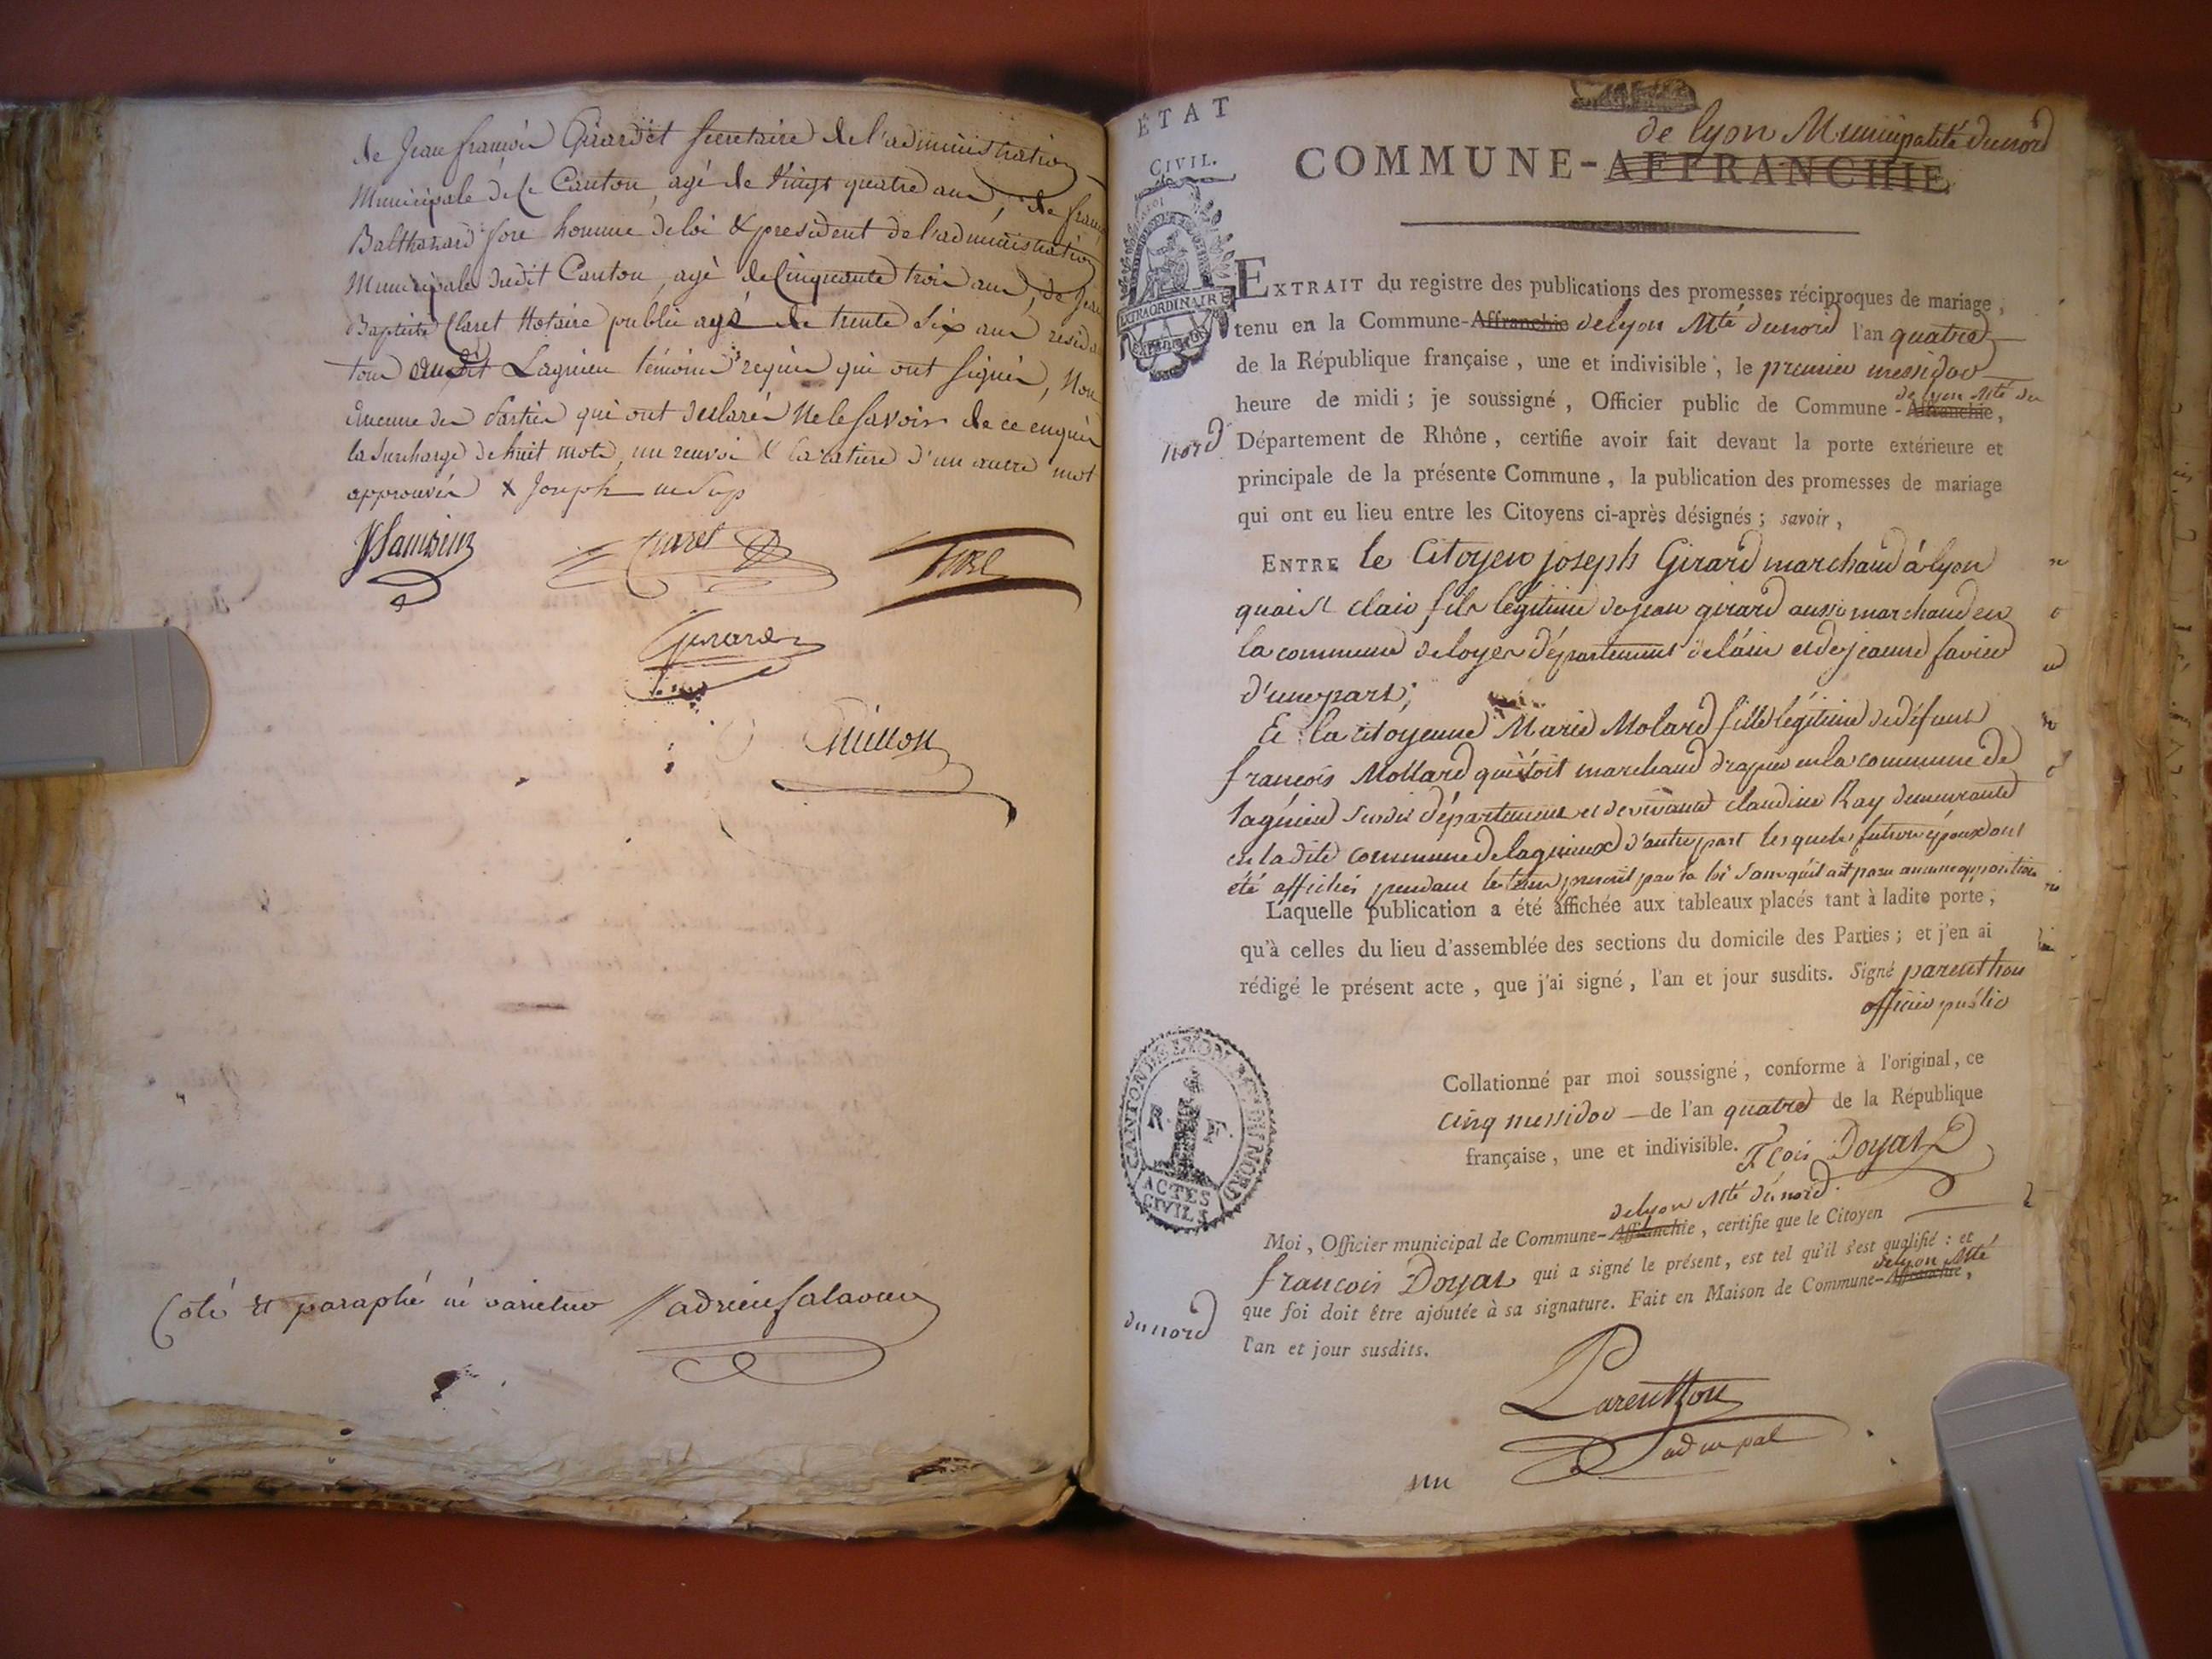 de Jean françois Girardet secretaire de l'administration
Municipale de ce Canton, agé de vingt quatre ans, de
Balthazard fore homme de loi & president de l'administration
Municipale dudit Canton, agé de Cinquante trois ans, de Jean
Baptiste Claret Notaire public agé de trente six ans
tous dudit Lagnieu témoins requis qui ont signés, Non
aucune des Parties qui ont declarés ne le savoir de ce enquis
la surcharge de huit mots, un renvoi & la rature d'un autre mot
approuvés X Joseph
Claret
fore
Girardet
Guillon
Coté et paraphé né varietur
ETAT
CIVIL.
LA LOI
EXTRAORDINAIRE
de lyon Municipalité du nord
COMMUNE-AFFRANCHIE
EXTRAIT du registre des publications des promesses réciproques de mariage,
tenu en la Commune-Affranchie de lyon Mté du nord l'an quatre
de la République française, une et indivisible; le premier messidor
heure de midi; je soussigné, Officier public de Commune-Affranchie, de lyon Mté du
nord Département de Rhône, certifie avoir fait devant la porte extérieure et
principale de la présente Commune, la publication des promesses de mariage
qui ont eu lieu entre les Citoyens ci-après désignés; savoir,
ENTRE le Citoyen joseph Girard marchand à lyon
quai St clair fils légitime de jean girard aussi marchand en
la commune de loyes département de l'ain et de jeanne favier
d'une part;
Et la citoyenne Marie Molard fille légitime de défunt
françois Mollard qui étoit marchand drapier en la commune de
lagnieu susdit département et de vivante claudine Ray demeurante
en la dite commune de lagnieux d'autre part lesquels futurs époux ont
été affichés pendant le tems prescrit par la loi sans qu'il ait paru aucune opposition
Laquelle publication a été affichée aux tableaux placés tant à ladite porte,
qu'à celles du lieu d'assemblée des sections du domicile des Parties; et j'en ai
rédigé le présent acte, que j'ai signé, l'an et jour susdits. Signé parenthou
officier public
CANTON DE LYON Mté DU NORD
R. F.
ACTES
CIVILS
Collationné par moi soussigné, conforme à l'original, ce
cinq messidor de l'an quatre de la République
française, une et indivisible. fçois Doyat
de lyon Mté du nord.
Moi, Officier municipal de Commune-Affranchie, certifie que le Citoyen
francois Doyat qui a signé le présent, est tel qu'il s'est qualifié: et
que foi doit être ajoutée à sa signature. Fait en Maison de Commune-Affranchie, de lyon Mté
du nord l'an et jour susdits.
Parenthou
ad m pal